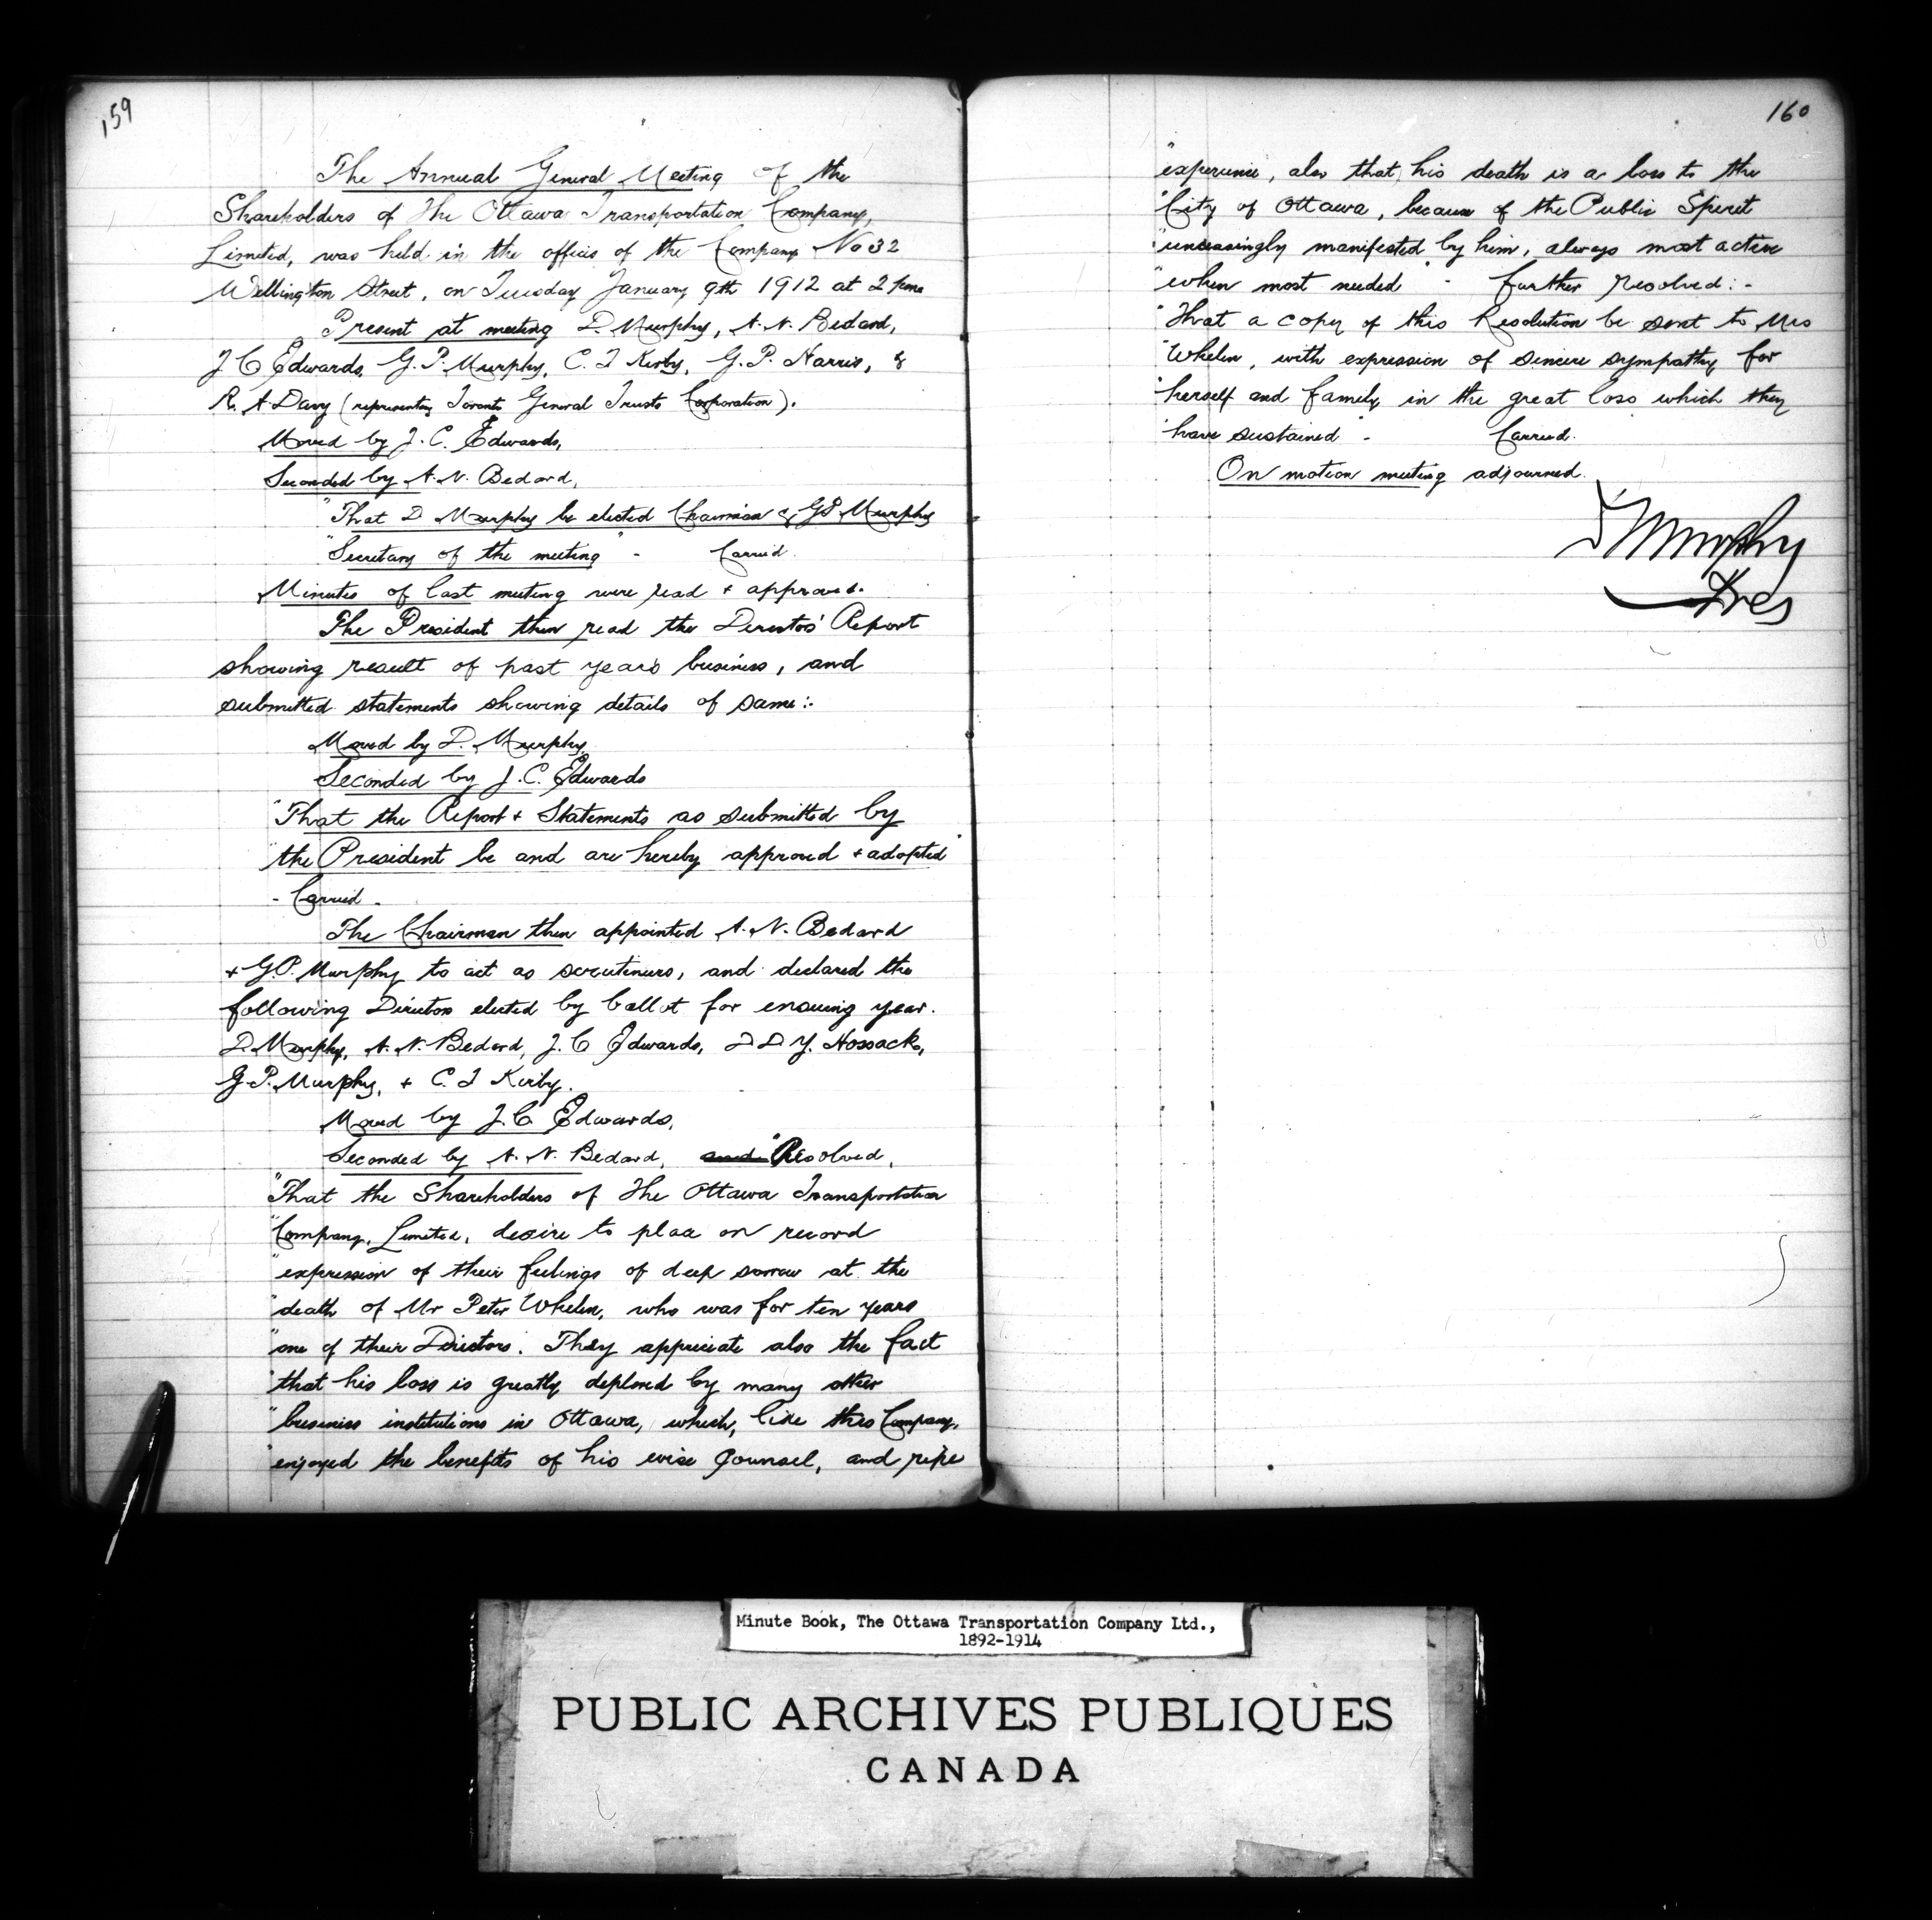 159
The Annual General Meeting of the
Shareholders of The Ottawa Transportation Company,
Limited, was held in the offices of the Company No 32
Wellington Street, on Tuesday January 9th 1912 at 2 pm
Present at meeting D. Murphy, A. N. Bedard,
J C Edwards, G. P. Murphy, C. T Kirby, G. P. Harris, &
R. A Davy (representing Toronto General Trusts Corporation).
Moved by J. C. Edwards,
Seconded by A. N. Bedard,
"That D Murphy be elected Chairman & GP Murphy
"Secretary of the meeting" - Carried.
Minutes of last meeting were read + approved.
The President then read the Directors' Report
showing result of past years business, and
submitted statements showing details of same:-
Moved by D. Murphy,
Seconded by J. C. Edwards
"That the Report + Statements as submitted by
"the President be and are hereby approved + adopted"
- Carried -
The Chairman then appointed A. N. Bedard
+ G.P. Murphy to act as scrutineers, and declared the
following Directors elected by ballot for ensuing year.
D. Murphy, A. N. Bedard, J. C Edwards, D D Y. Hossack,
G. P. Murphy, + C. T Kirby.
Moved by J. C Edwards,
Seconded by A. N. Bedard, and "Resolved,
"That the Shareholders of The Ottawa Transportation
"Company, Limited, desire to place on record
"expression of their feelings of deep sorrow at the
"death of Mr Peter Whelen, who was for ten years
"one of their Directors. They appreciate also the fact
"that his loss is greatly deplored by many other
"business institutions in Ottawa, which, like this Company,
"enjoyed the benefits of his wise Counsel, and ripe
160
"experience, also that his death is a loss to the
"City of Ottawa, because of the Public Spirit
"unceasingly manifested by him, always most active
"when most needed" - Further resolved:-
"That a copy of this Resolution be sent to Mrs
"Whelen, with expression of sincere sympathy for
"herself and family in the great loss which they
"have sustained" - Carried.
On motion meeting adjourned.
D Murphy
Pres
Minute Book, The Ottawa Transportation Company Ltd.,
1892-1914
PUBLIC ARCHIVES PUBLIQUES
CANADA